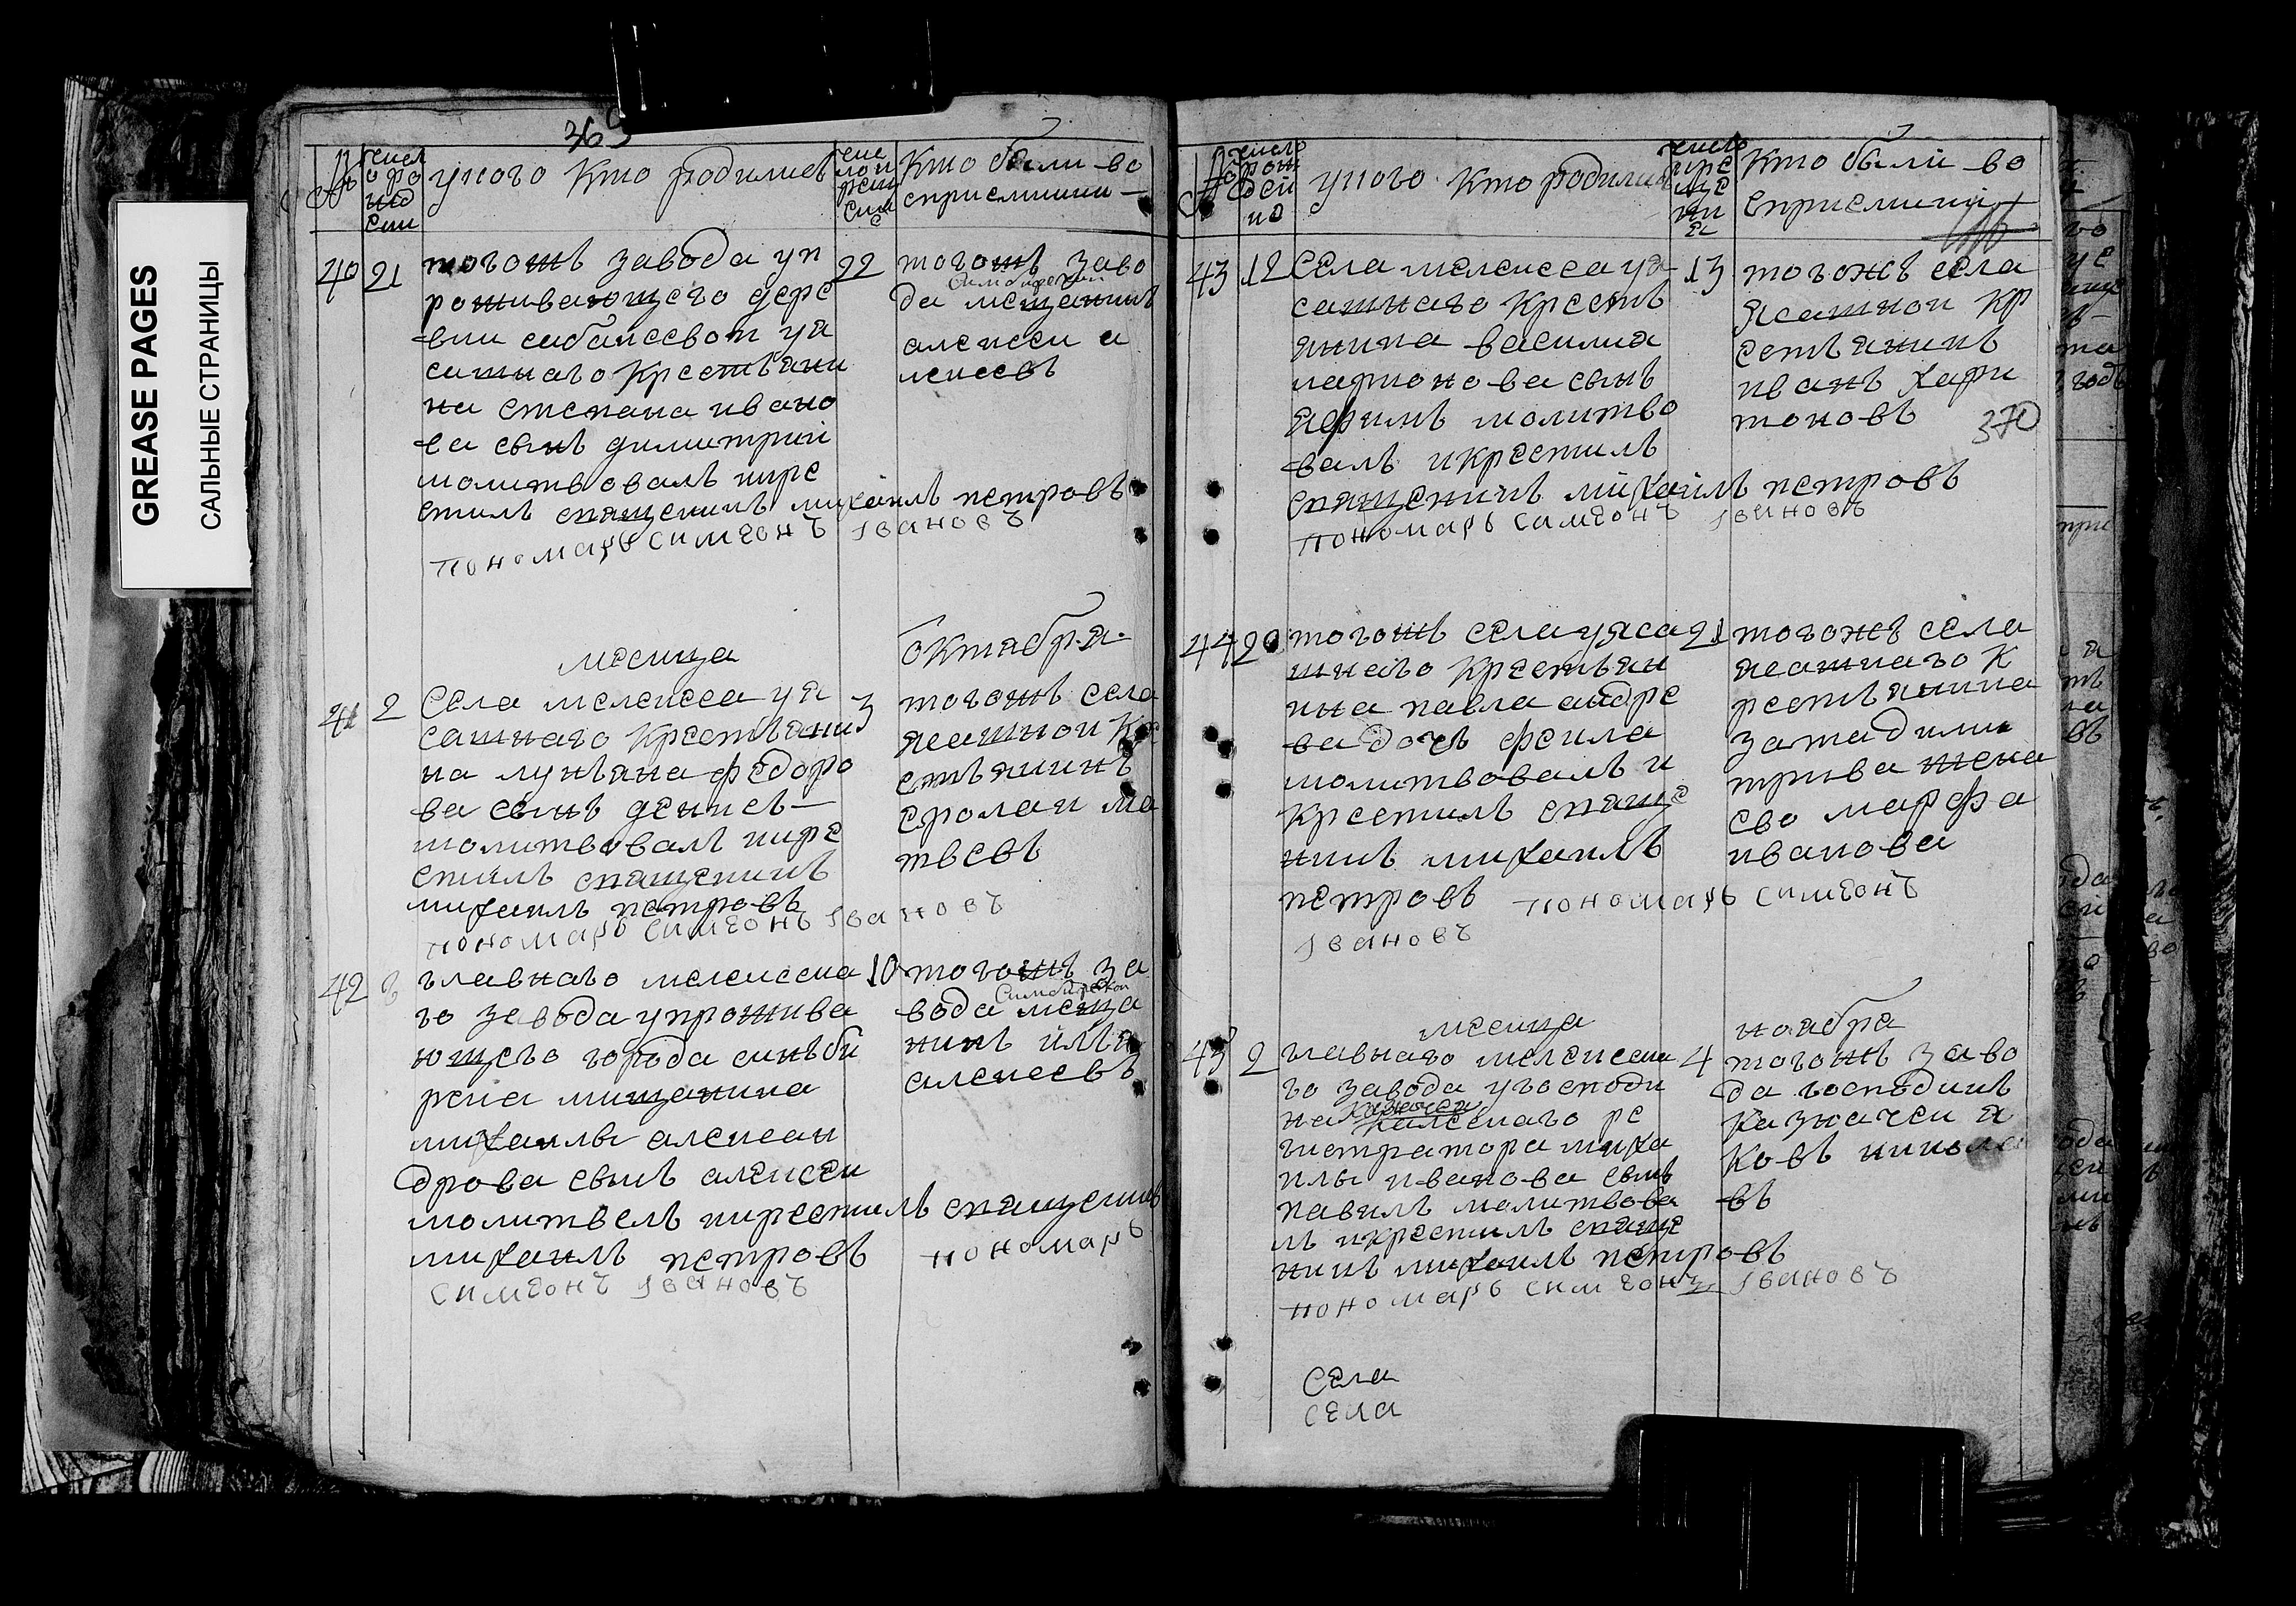 GREASE PAGES
САЛЬНЫЕ СТРАНИЦЫ
369
№
число рожд ении
укого кто родились
чис ло и крещ ения
кто были во
сприемники
40 21 22
тогожъ завода уп
роживающего дере
вни сабакеевои уя
сашнаго крестьяни
на степана ивано
ва сынъ димитрий
молитвовалъ икре
стилъ священикъ михаилъ петровъ
пономарь симеонъ Iвановъ
тогожъ заво
симбирской
да мещанинъ
алексеи а
лексевъ
месяца октября
41 2 3
села мелекеса уя
сашнаго крестьяни
на лукьяна федоро
ва сынъ денисъ
молитвовалъ икре
стилъ священикъ
михаилъ петровъ
пономарь симеонъ Iвановъ
тогожъ села
ясашнои кре
стьянинъ
фролаи ма
твеевъ
42 10
главнаго мелекеска
го завода упрожива
ющего города синьби
рска мищанина
михаилы алексан
дрова сынъ алексеи
молитвелъ икрестилъ священикъ
михаилъ петровъ пономарь
симеонъ Iвановъ
тогожъ за
симбирской
вода меща
нинъ илья
алексеевъ
№
число рожденио
укого кто родились
число креще ни я
кто были во
сприемники
43 12 13
села мелекеса уя
сашнаго кресть
янина василиа
ларионова сынъ
яфимъ молитво
валъ икрестилъ
священикъ михаилъ петровъ
пономарь симеонъ Iвановъ
тогожъ села
ясашнои кр
естьянинъ
иванъ хари
тоновъ
370
44 20 21
тогожъ села уяса
шнаго крестьян
ина павла андре
ва дочь фекла
молитвовалъ и
крестилъ свяще
никъ михаилъ
петровъ пономарь симеонъ
Iвановъ
тогожъ села
ясашнаго к
рестьянина
димитрива жена
ево марфа
иванова
месяца ноября
45 2 4
главнаго мелекеска
го завода угосподи
на
гистратора миха
илы иванова сынъ
павилъ молитвова
лъ икрестилъ свяще
никъ михаилъ петровъ
пономарь симеонъ Iвановъ
тогожъ заво
да господинъ
казначеи я
ковъ никола
въ
села
села